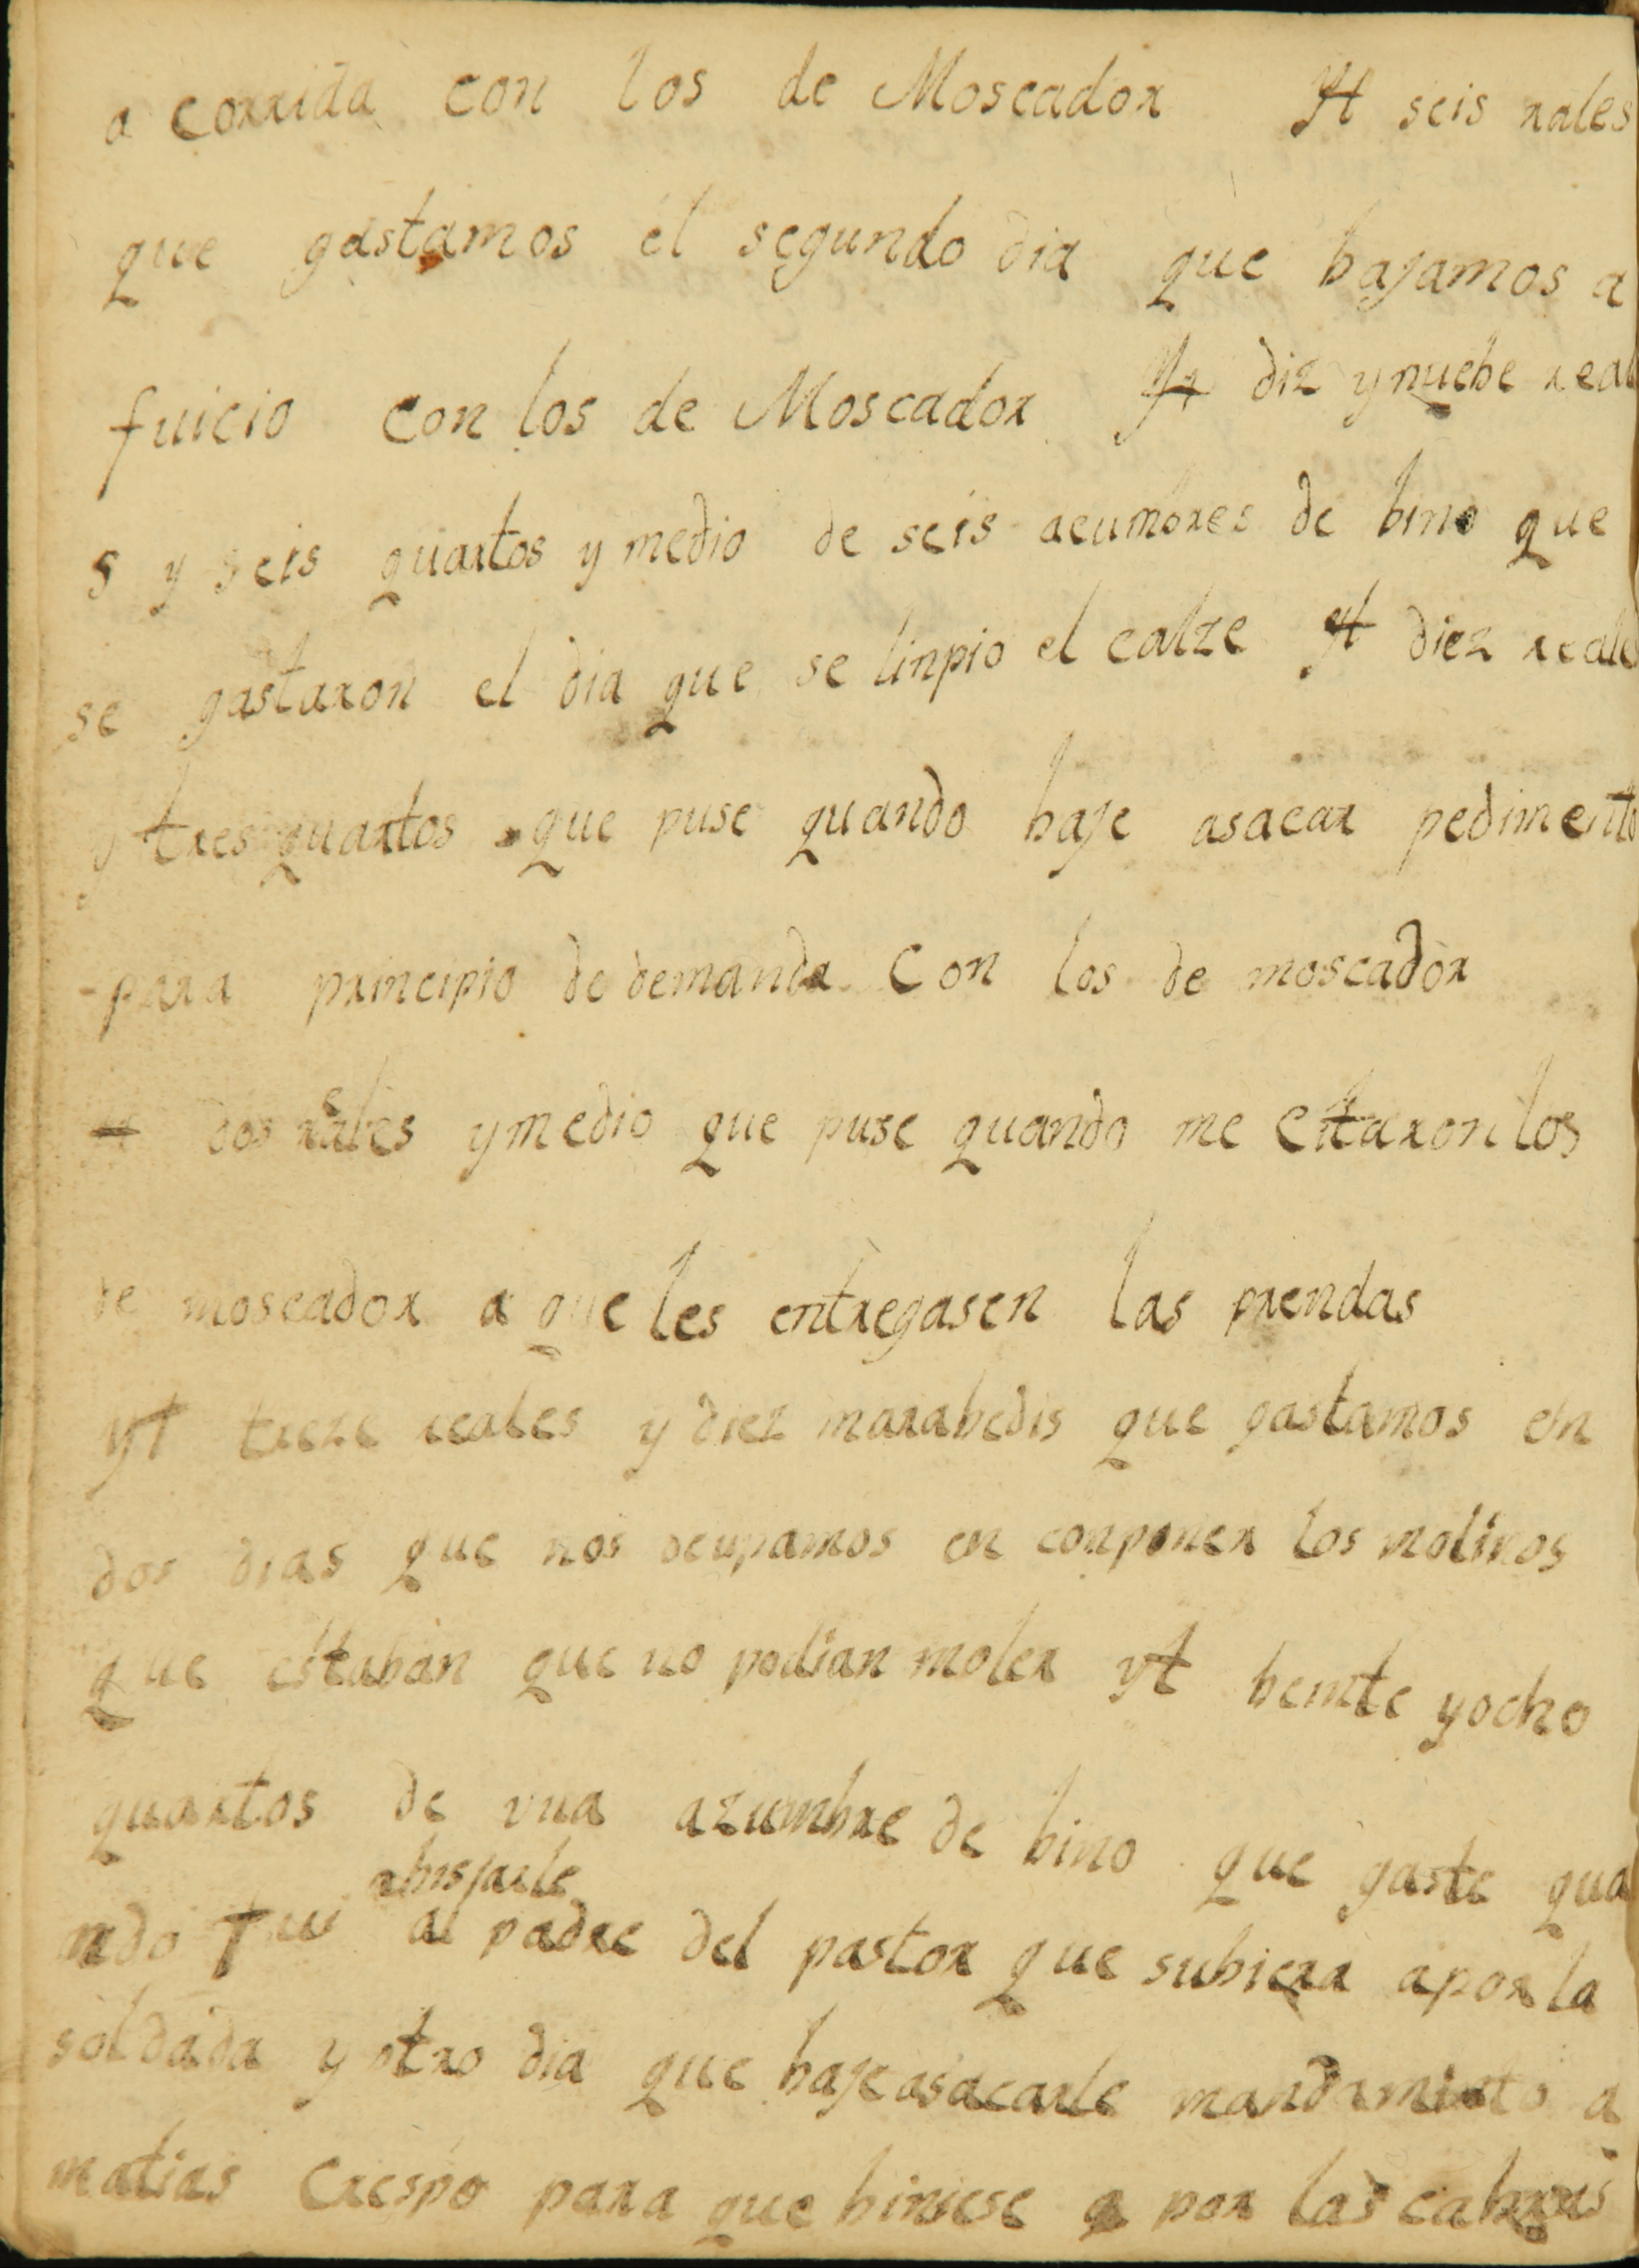 a corrida con los de Moscador Yt seis rales
que gastamos el segundo dia que bajamos a
juicio con los de Moscador Yt diz y nuebe real
s y seis quartos y medio de seis acumbres de bino que
se gastaron el dia que se linpio el calze Yt diez reale
y tres quartos que puse quando baje asacar pedimento
para principio de demanda con los de moscador
dos reales y medio que puse quando me citaron los
de moscador a que les entregasen las prendas
yt treze reales y diez marabedis que gastamos en
dos dias que nos ocupamos en conponer los molinos
que estaban que no podian moler yt beinte y ocho
quartos de vna azumbre de bino que gaste qua
abisarle
ndo fui al padre del pastor que subiera apor la
soldada y otro dia que baje asacarle mandamiento a
matias Crespo para que biniese a por las cabras